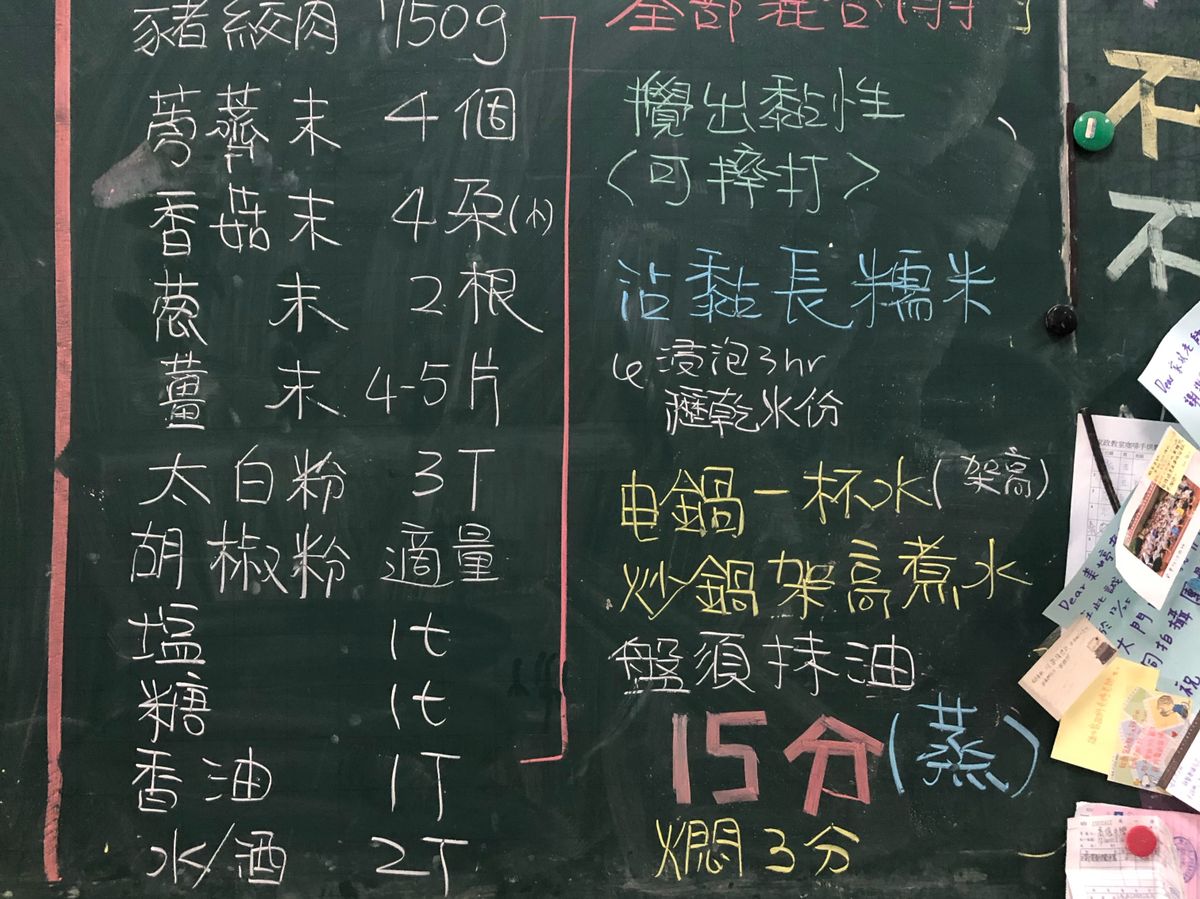 豬絞肉 150g
荸薺末 4個
香菇末 4朵(小)
蔥末 2根
薑末 4-5片
太白粉 3T
胡椒粉 適量
塩 1t
糖 1t
香油 1T
水/酒 2T
全部混合
攪出黏性
(可摔打)
沾黏長糯米
浸泡3hr
瀝乾水份
电鍋一杯水(架高)
炒鍋架高煮水
盤須抹油
15分(蒸)
燜3分
不
不